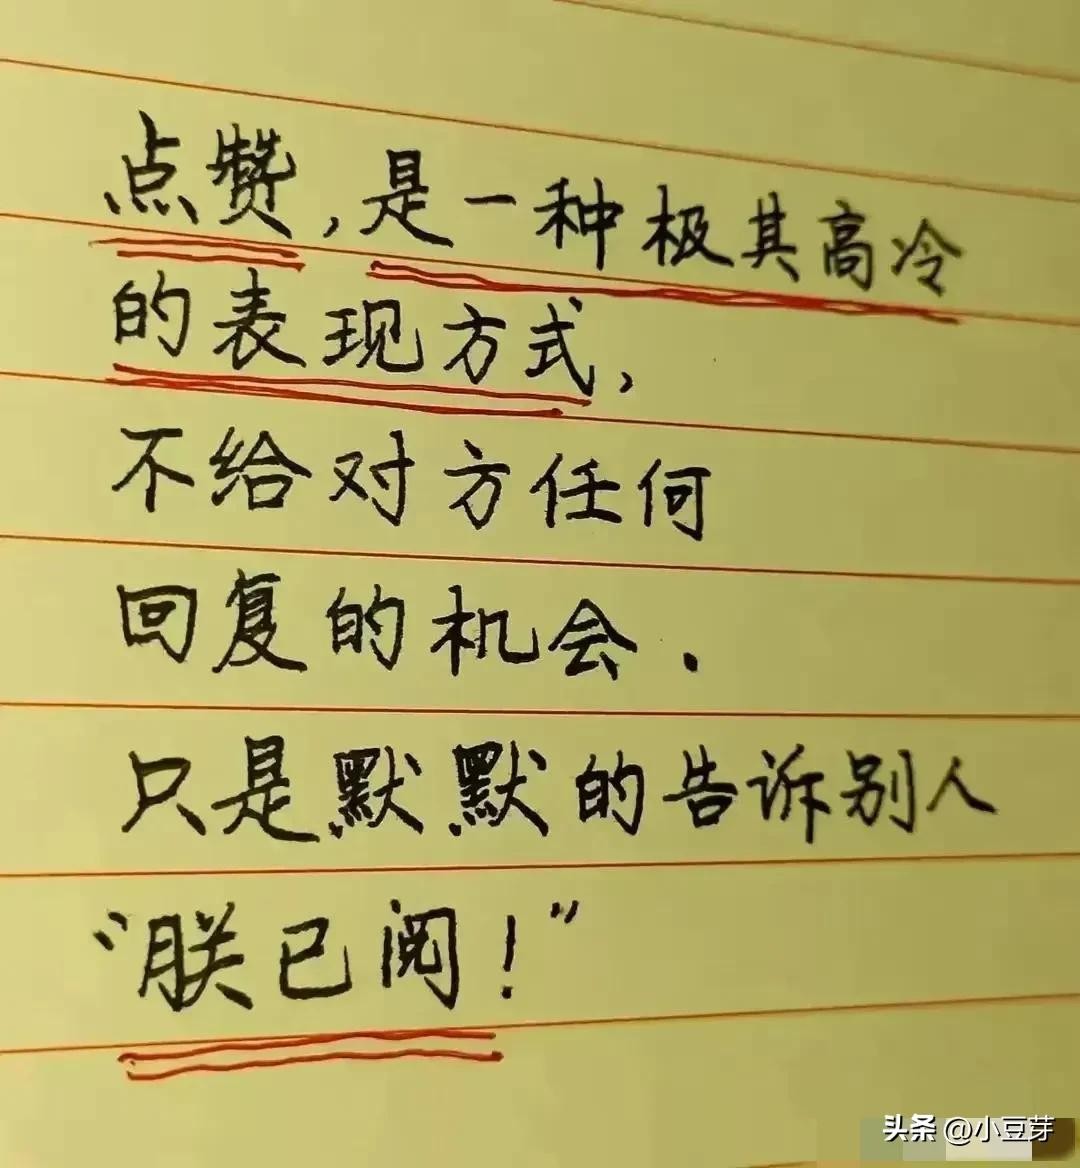 点赞,是一种极其高冷
的表现方式,
不给对方任何
回复的机会.
只是默默的告诉别人
“朕已阅!”
头条 @小豆芽